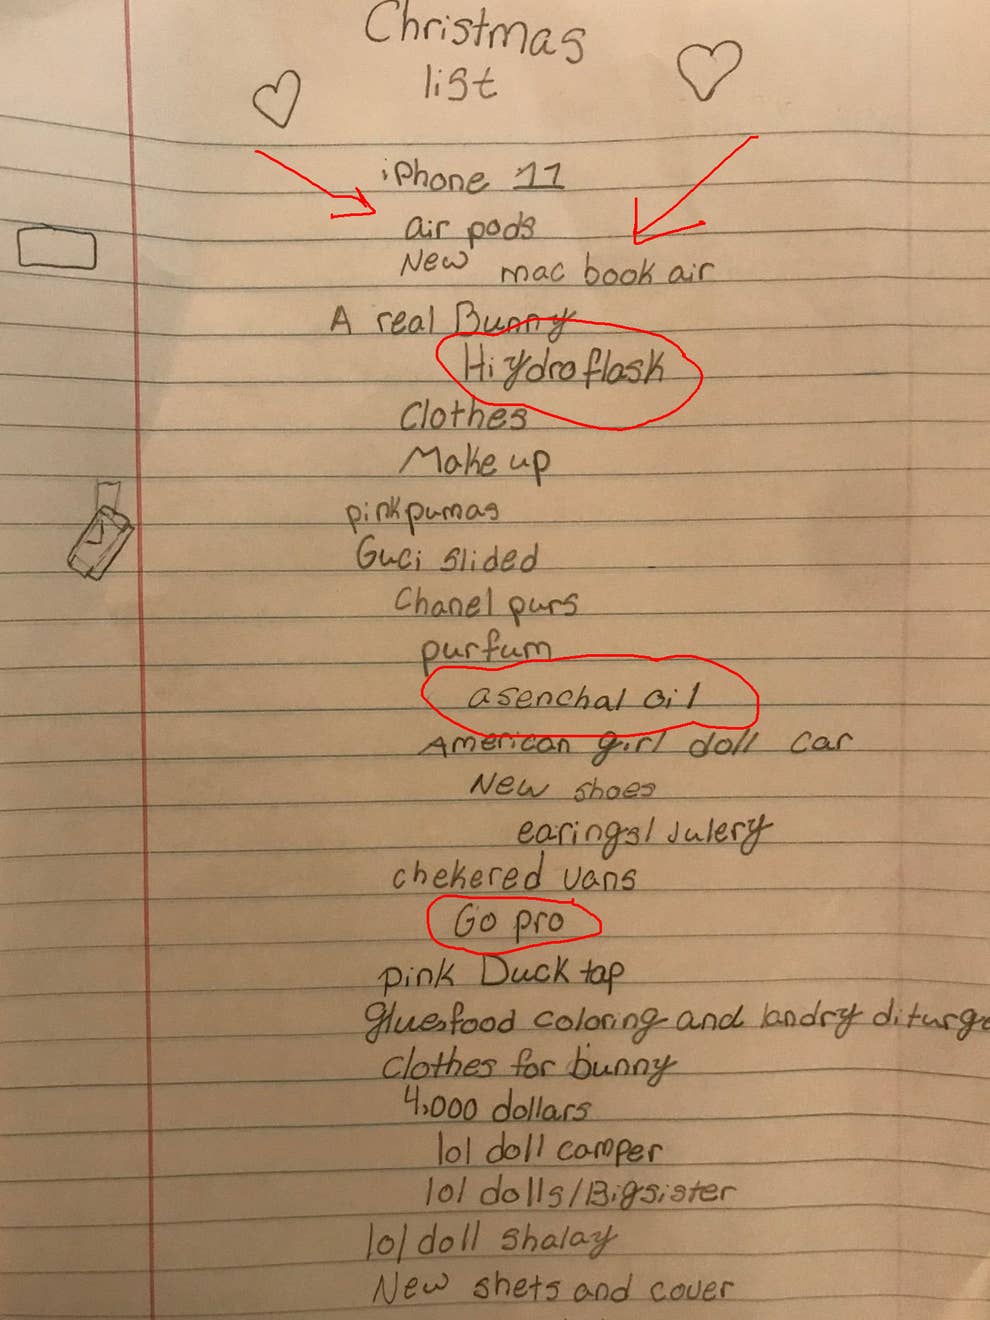 Christmas
list
iPhone 11
air pods
New mac book air
A real Bunny
Hiydroflask
Clothes
Make up
pink pumas
Guci slided
Chanel purs
purfum
asenchal oil
American girl doll car
New shoes
earings/Julery
chekered vans
Go pro
pink Duck tap
glue,food coloring and landry diturge
clothes for bunny
4,000 dollars
lol doll camper
lol dolls/Bigsister
lol doll shalay
New shets and cover